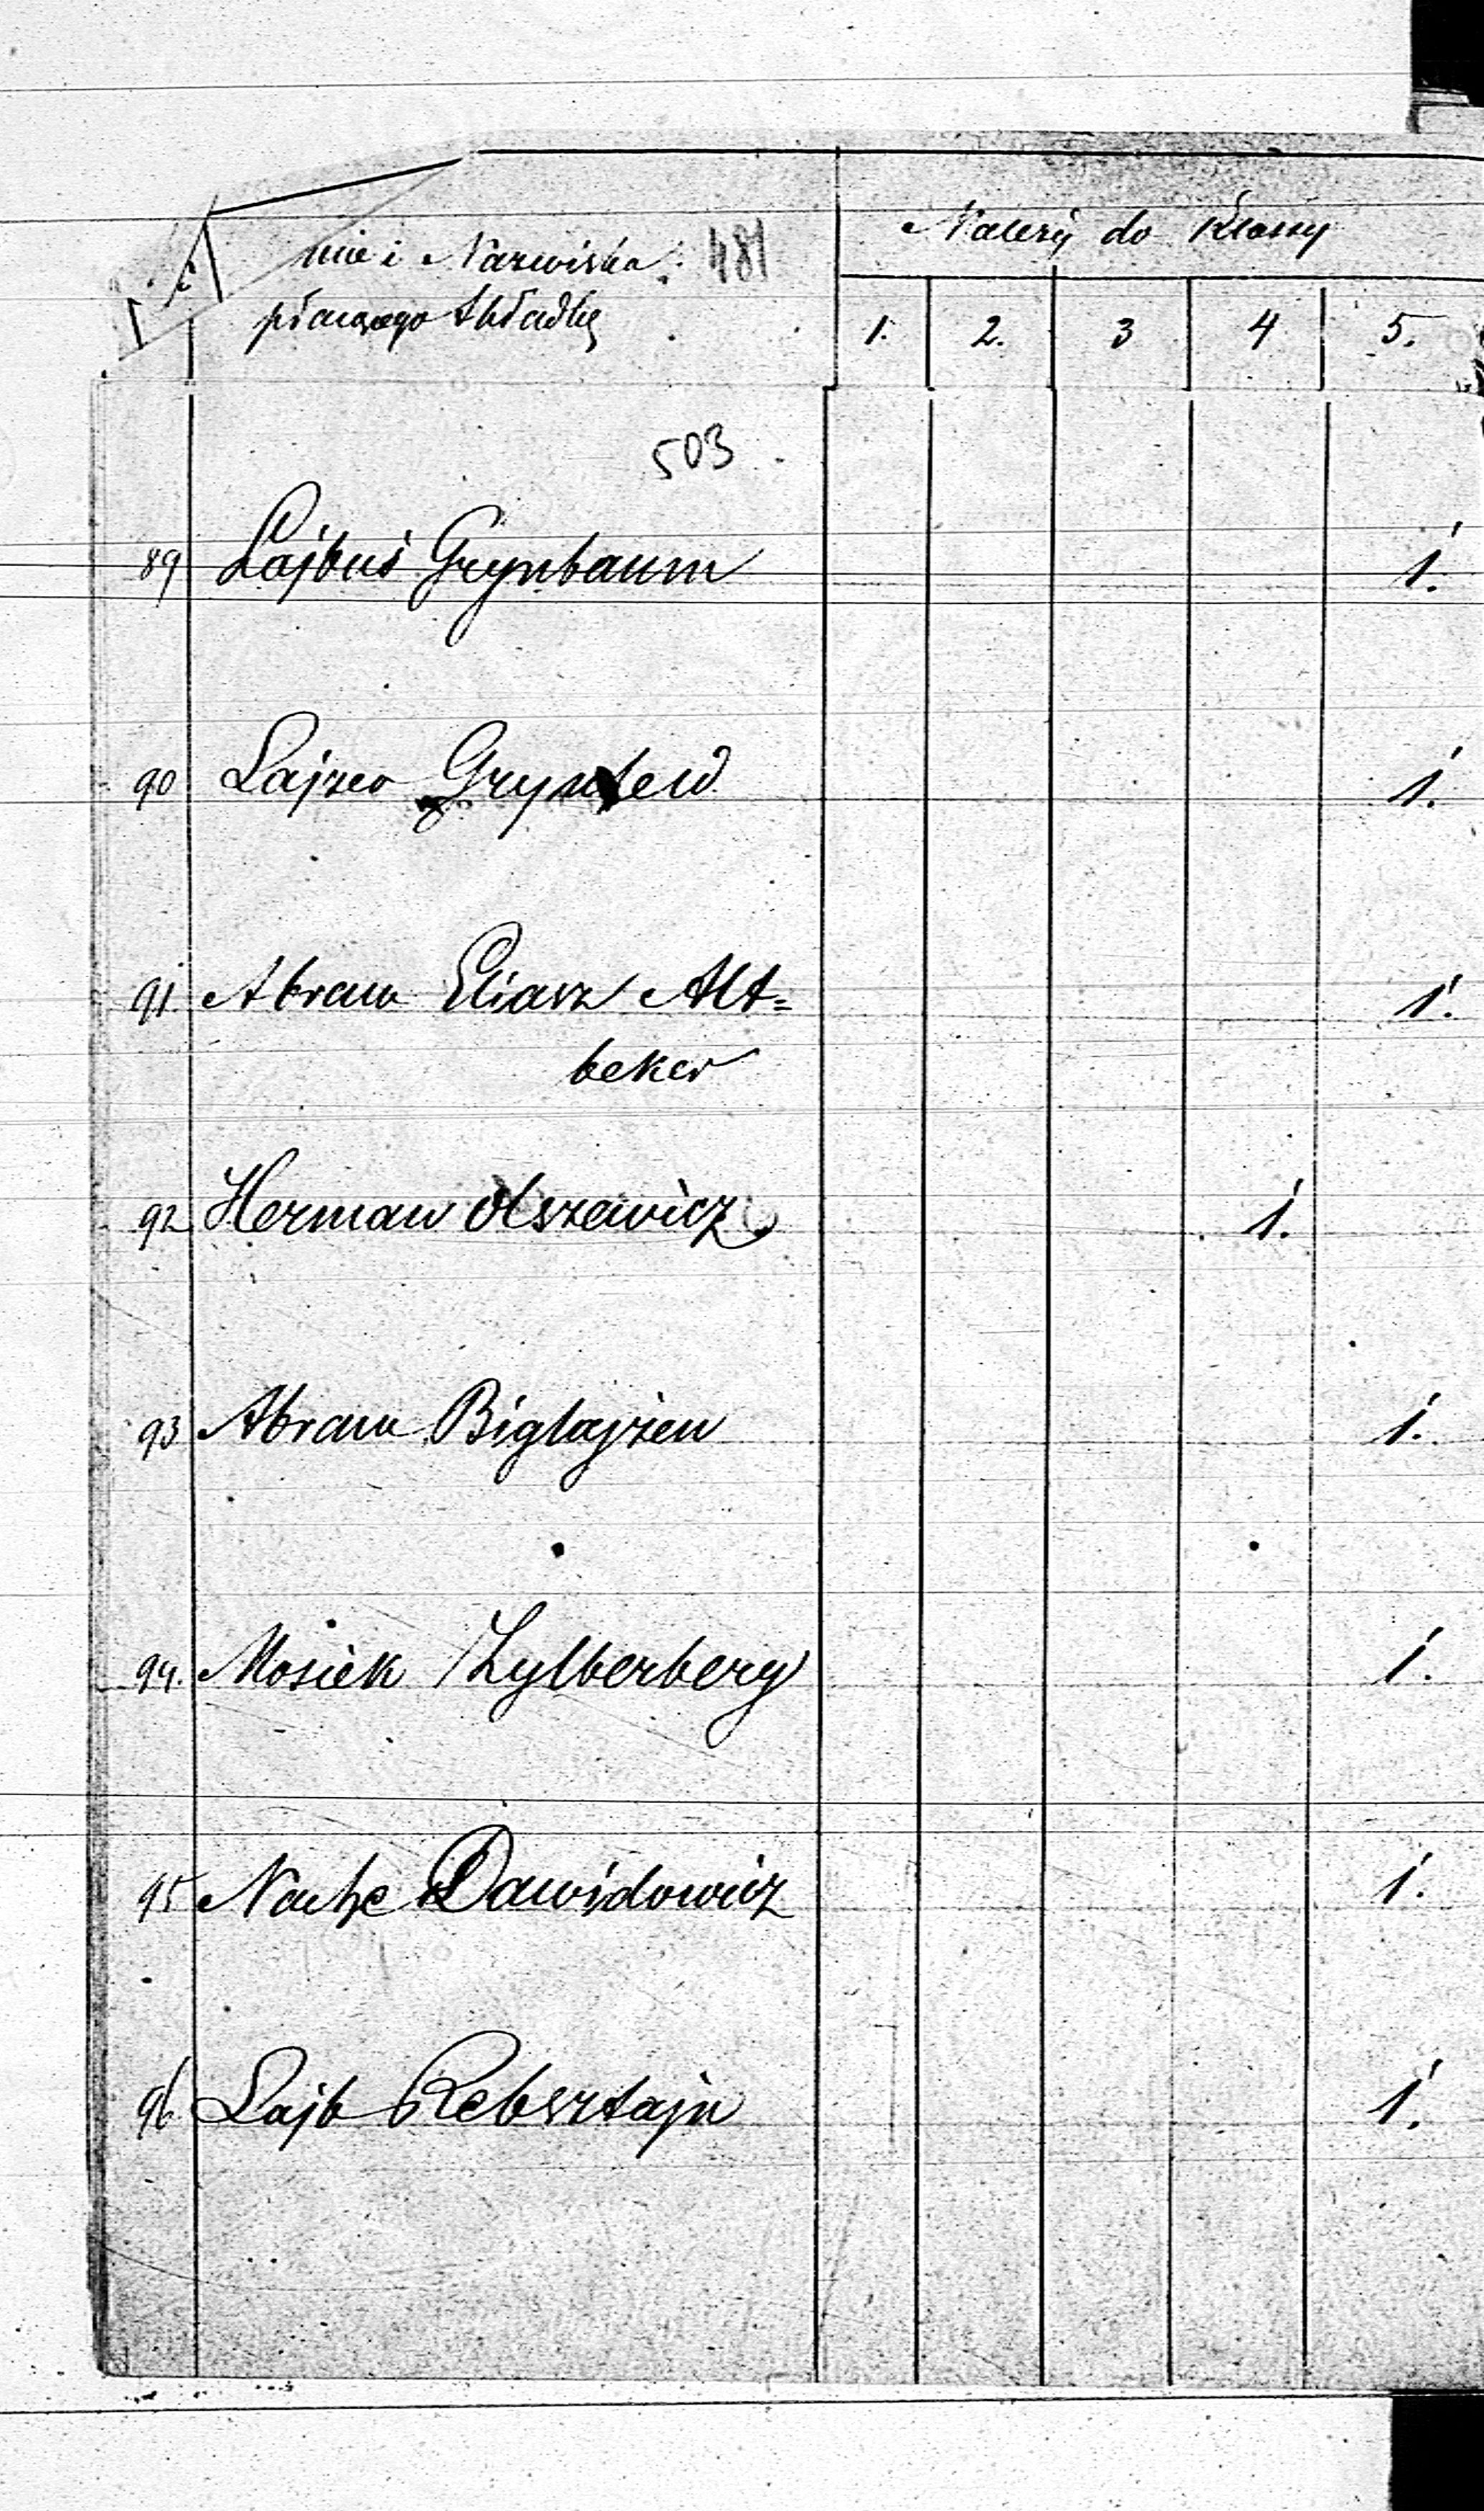 mie i Nazwiska 481
płacącego składkę
Należy do Klassy
1. 2. 3 4 5.
503
89 Lajbuś Grynbaum 1.
90 Lajzer 1.
91. Abram Eliasz Alt=
beker 1.
92 Herman Olszewicz 1.
93 Abram Biglajzen 1.
94. Mosiek Zylberberg 1.
95 Dawidowicz 1.
96 Lajb Rebsztajn 1.